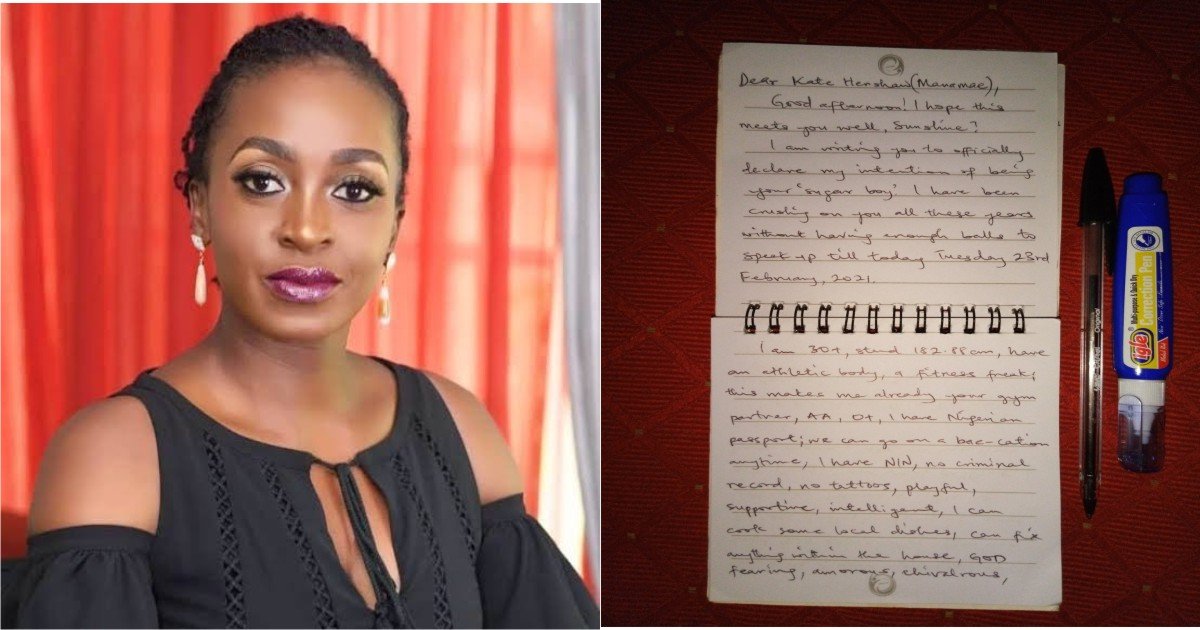 Dear Kate Henshaw (Manamae),
Good afternoon! I hope this
meets you well, Sunshine?
I am writing you to officially
declare my intention of being
your 'sugar boy'. I have been
crushing on you all these years
without having enough balls to
speak up till today Tuesday 23rd
February, 2021.
I am 30+, stand 182.88cm, have
an athletic body, a fitness freak;
this makes me already your gym
partner, AA, O+, I have Nigerian
passport; we can go on a bae-cation
anytime, I have NIN, no criminal
record, no tattoos, playful,
supportive, intelligent, I can
cook some local dishes, can fix
anything within the house, GOD
fearing, amorous, chivalrous,
Original
Multi-purpose & Quick Dry
Correction Pen